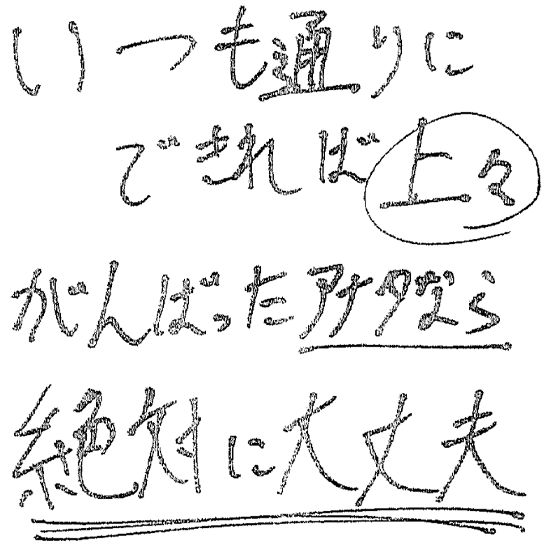 いつも通りに
できれば上々
がんばったアナタなら
絶対に大丈夫